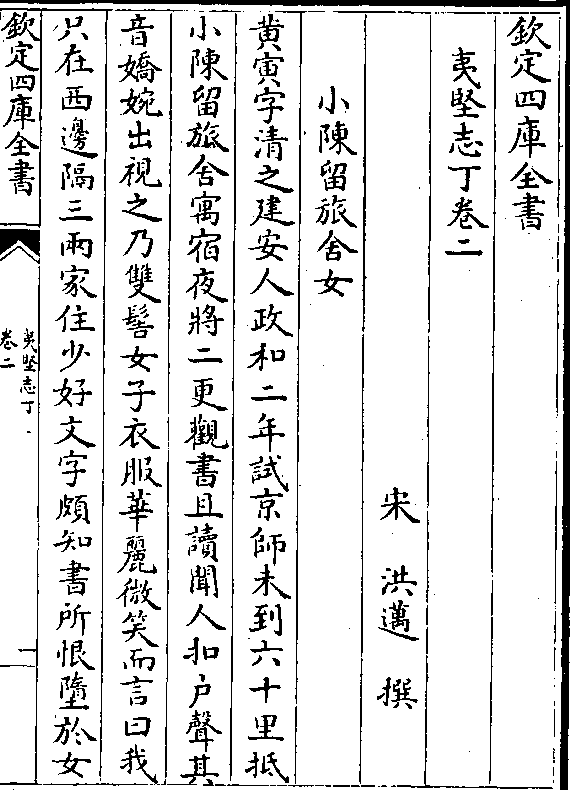 欽定四庫全書
夷堅志丁卷二
宋　洪邁　撰
小陳留旅舍女
黄寅字清之建安人政和二年試京師未到六十里抵
小陳留旅舍寓宿夜將二更觀書且讀聞人扣户聲其
音嬌婉出視之乃雙髻女子衣服華麗微笑而言曰我
只在西邊隔三兩家住少好文字頗知書所恨墮於女
欽定四庫全書
夷堅志丁
卷二
一